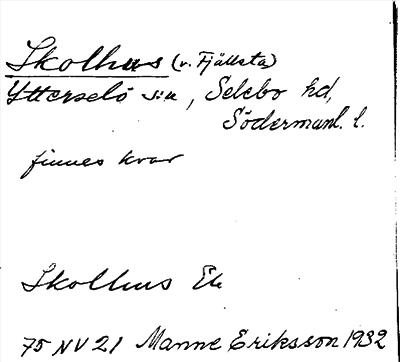 Skolhus (v. Fjällsta)
Ytterselö sn, Selebo hd,
Södermanl. l.
finnes kvar
Skolhus Ek
75 NV 21 Manne Eriksson 1932